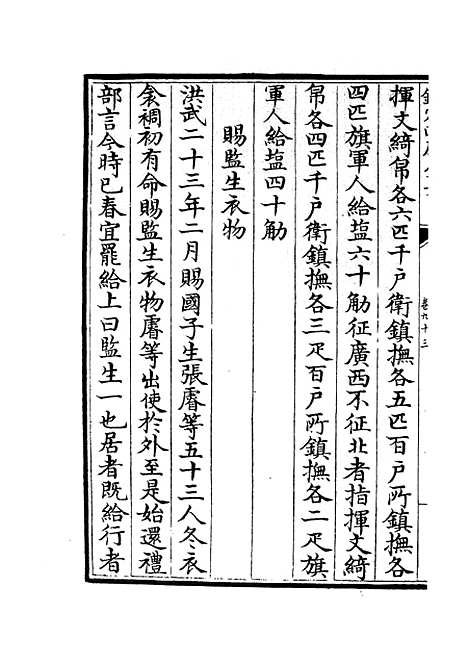 卷九十三
揮文綺帛各六匹千戶衛鎮撫各五匹百戶所鎮撫各
四匹旗軍人給塩六十觔征廣西不征北者指揮文綺
帛各四匹千戶衛鎮撫各三疋百戶所鎮撫各二疋旗
軍人給塩四十觔
賜監生衣物
洪武二十三年二月賜國子生張㬜等五十三人冬衣
衾裯初有命賜監生衣物㬜等出使於外至是始還禮
部言今時已春宜罷給上曰監生一也居者既給行者